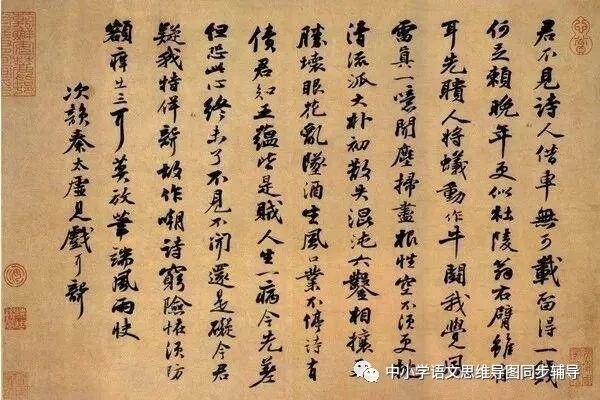 君不見詩人借車無可載留得一錢
何足賴晚年更似杜陵翁右臂雖存
耳先聵人將蟻動作牛鬥我覺風
雷真一噫聞塵掃盡根性空不須更枕
清流派大朴初散失混沌六鑿相攘
勝壞眼花亂墜酒生風口業不停詩有
債君知五蘊皆是賊人生一病今先差
但恐此心終未了不見不聞還是礙今君
疑我特佯聾故作嘲詩窮險怪須防
額癢出三耳莫放筆端風雨快
次韻秦太虛見戲耳聾
中小学语文思维导图同步辅导